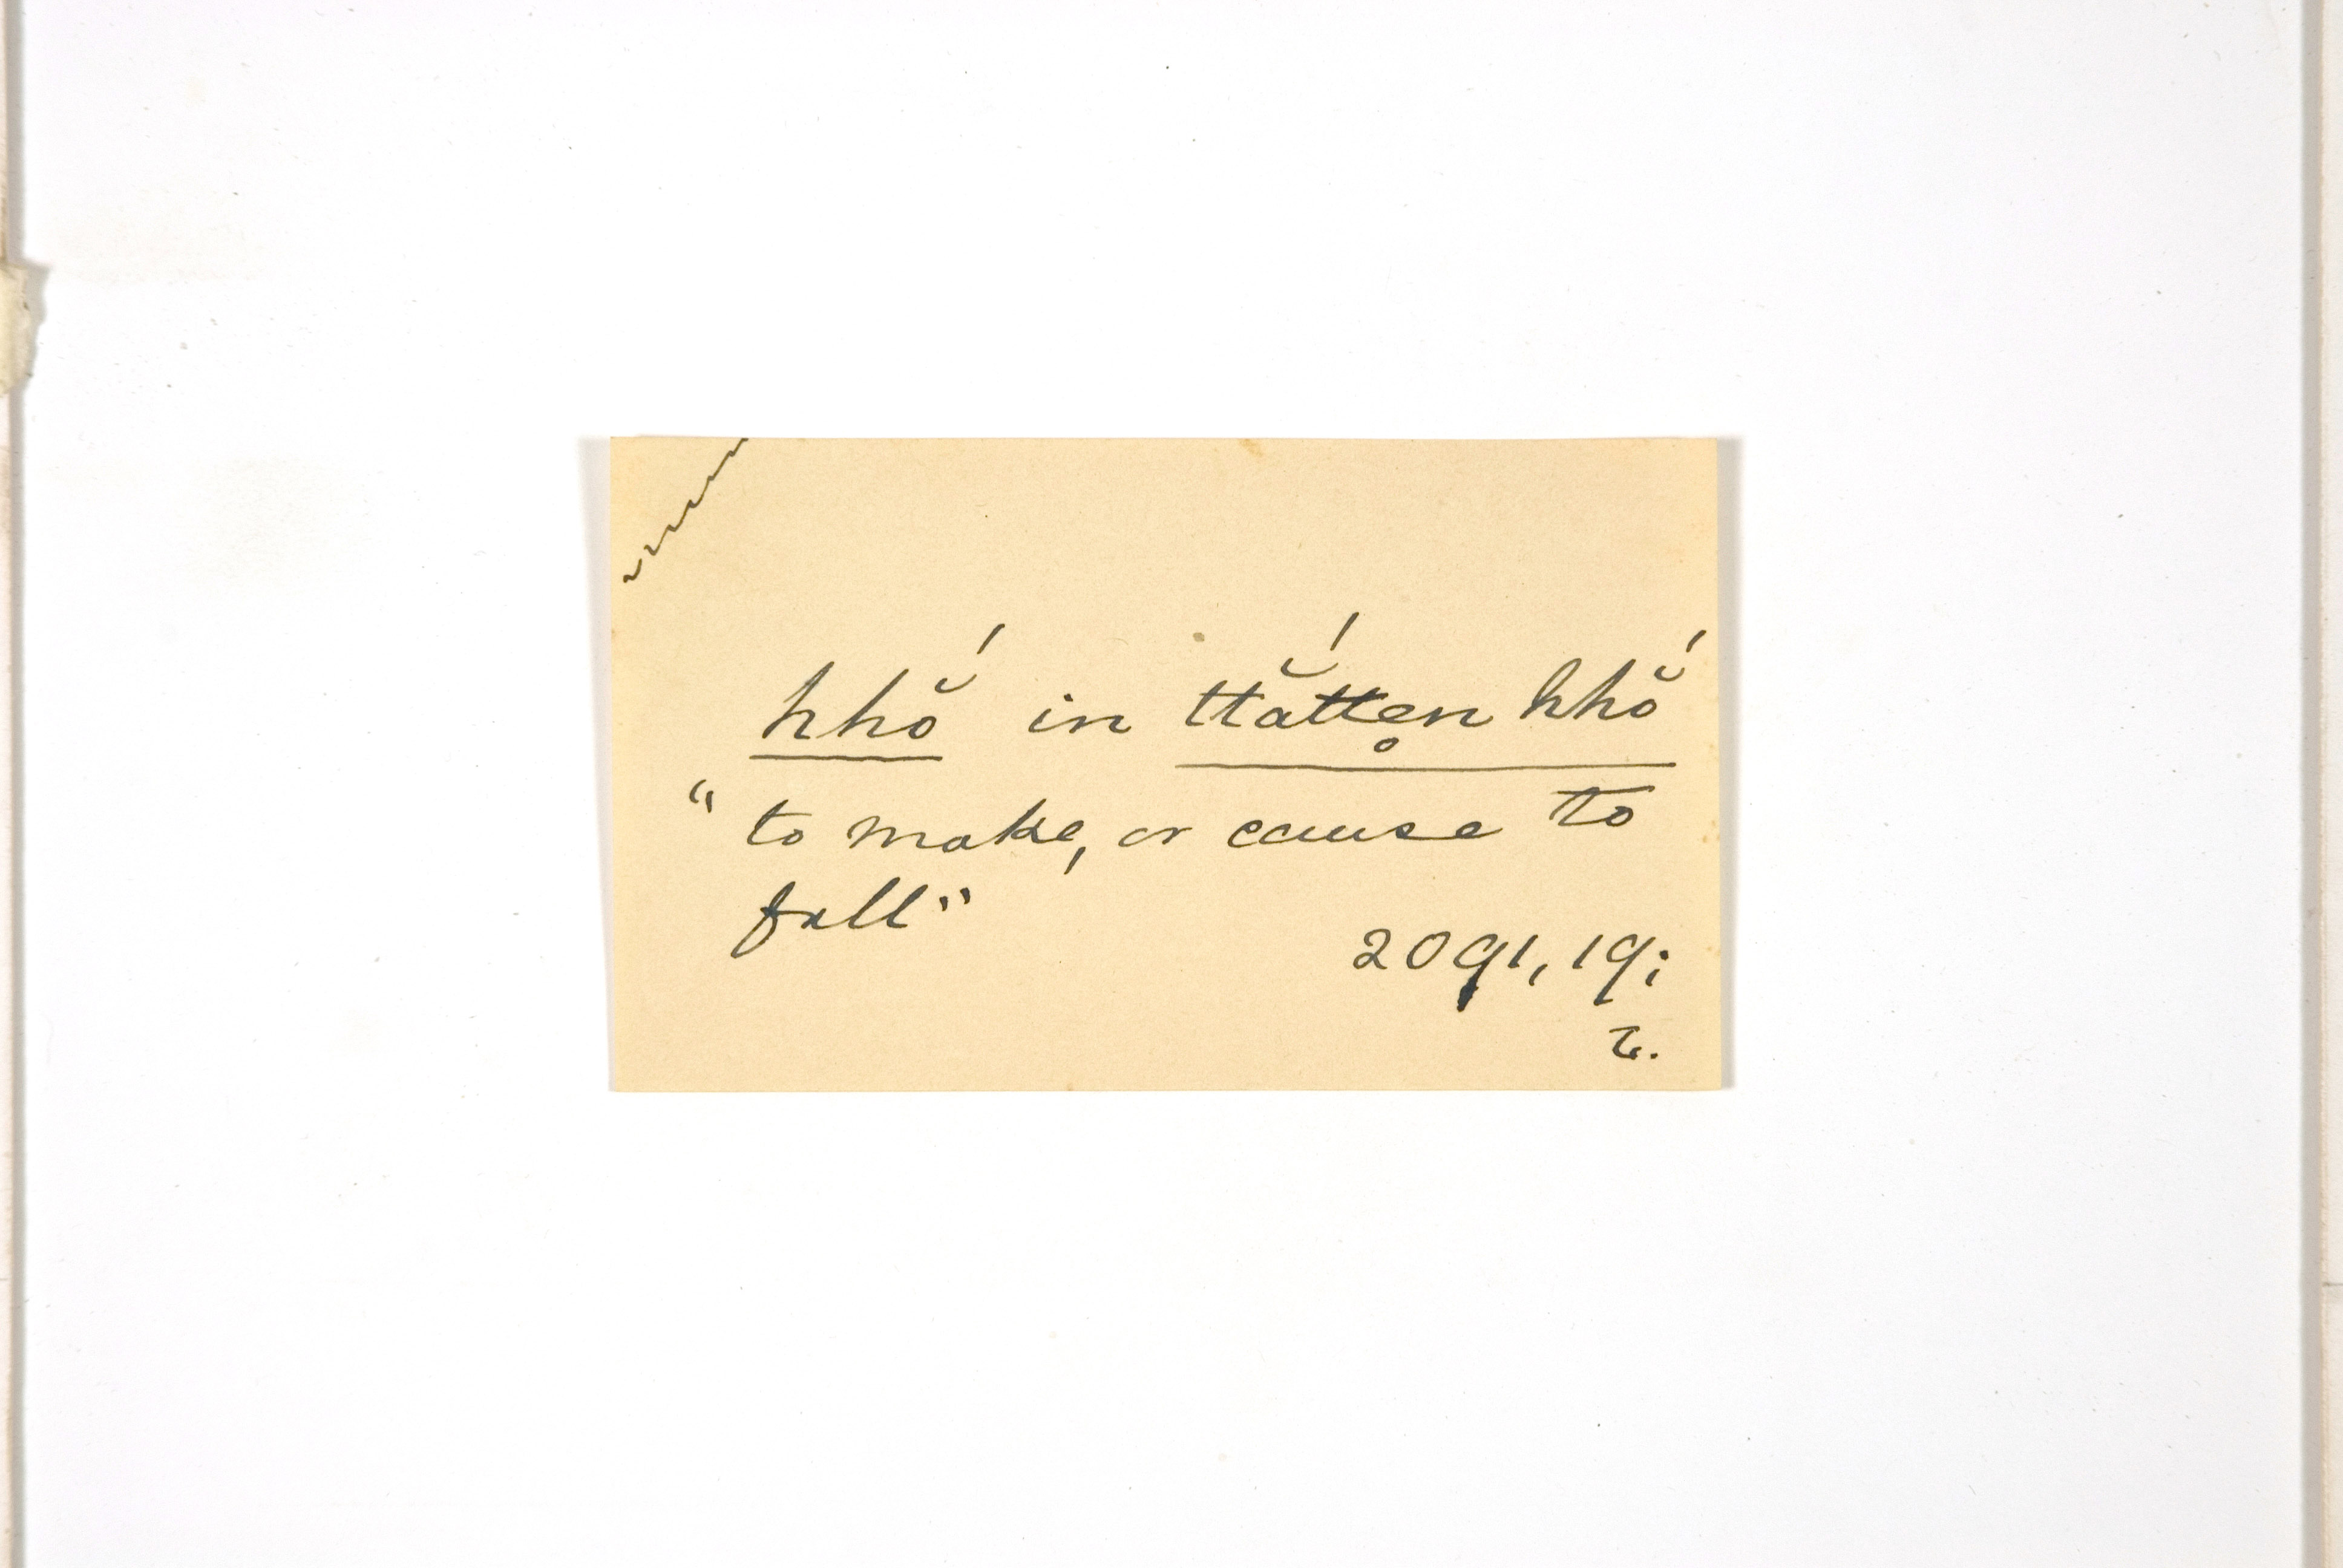 hhŏ́ in ttắtte̥n hhŏ́
"to make, or cause to
fall"
2091, 19;